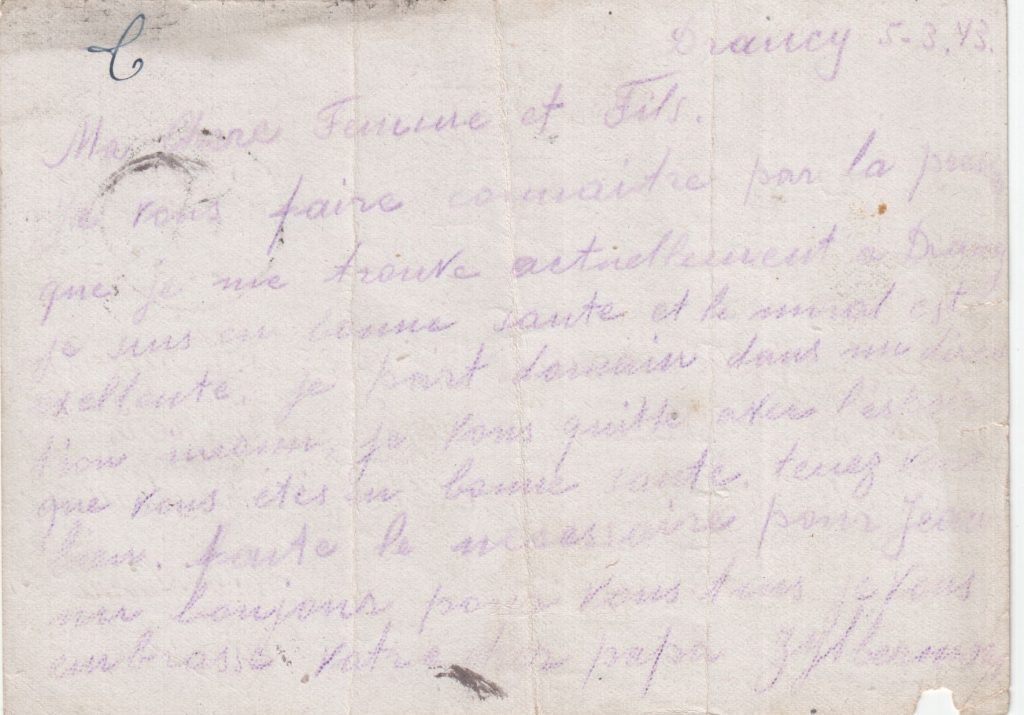 Drancy 5-3.43.
Ma Chere Femme et Fils.
Je vous faire connaitre par la
que je me trouve actuellement a Drancy
je suis en bonne sante et le moral est
exellente. je part demain dans un
tion inconu, je vous quitte avec
que vous etes en bonne sante. tenez vous
bien. faite le necessaire pour Jean
mr boujour pour vous tous je vous
embrasse votre cher papa